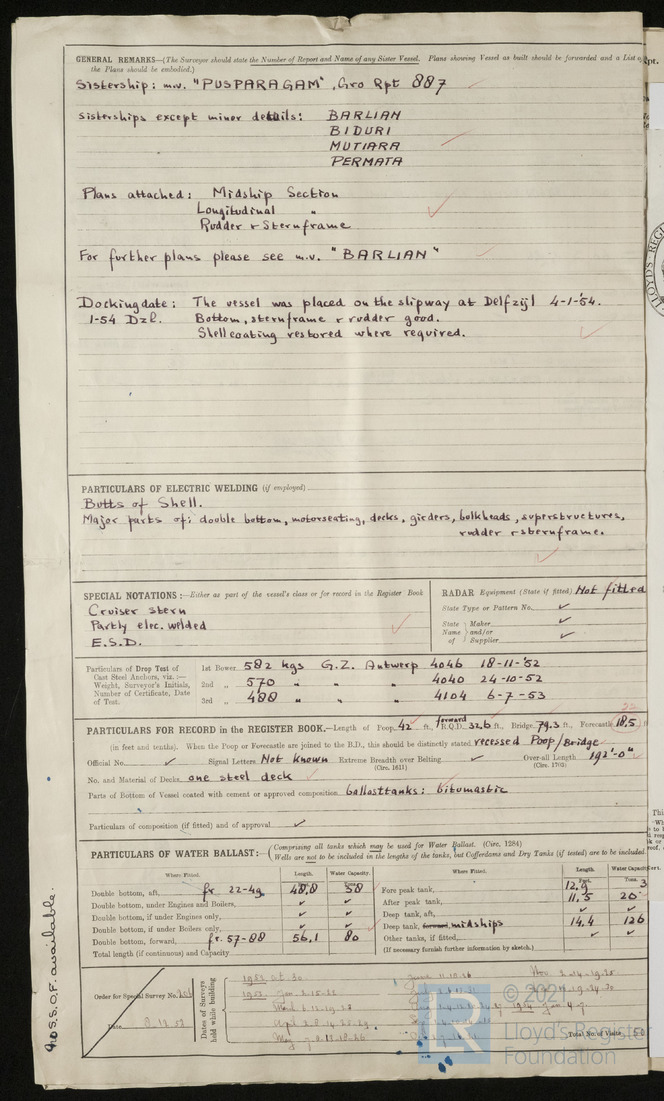 GENERAL REMARKS—(The Surveyor should state the Number of Report and Name of any Sister Vessel. Plans showing Vessel as built should be forwarded and a List of
the Plans should be embodied.)
Sistership: m.v. "PUSPARAGAM", Gro Rpt 887
Sisterships except minor details: BARLIAN
BIDURI
MUTIARA
PERMATA
Plans attached: Midship Section
Longitudinal "
Rudder & Sternframe
For further plans please see m.v. "BARLIAN"
Docking date: The vessel was placed on the slipway at Delfzijl 4-1-'54.
1-54 Dzl. Bottom, sternframe & rudder good.
Shellcoating restored where required.
PARTICULARS OF ELECTRIC WELDING (if employed)
Butts of Shell.
Major parts of: double bottom, motorseating, decks, girders, bulkheads, superstructures,
rudder & sternframe.
SPECIAL NOTATIONS:—Either as part of the vessel's class or for record in the Register Book
Cruiser stern
Partly elec. welded
E.S.D.
RADAR Equipment (State if fitted) Not fitted
State Type or Pattern No.
State Name of Maker and/or Supplier
Particulars of Drop Test of Cast Steel Anchors, viz.:— Weight, Surveyor's Initials, Number of Certificate, Date of Test.
1st Bower 582 kgs G.Z. Antwerp 4046 18-11-'52
2nd " 570 " " " 4040 24-10-52
3rd " 488 " " " 4104 6-7-53
PARTICULARS FOR RECORD in the REGISTER BOOK.—Length of Poop 42 ft., forward R.Q.D. 32.6 ft., Bridge 79.3 ft., Forecastle 18.5 ft
(in feet and tenths). When the Poop or Forecastle are joined to the B.D., this should be distinctly stated recessed Poop/Bridge
Official No. Signal Letters Not known Extreme Breadth over Belting (Circ. 1611) Over-all Length (Circ. 1703) 192'-0"
No. and Material of Decks one steel deck
Parts of Bottom of Vessel coated with cement or approved composition ballasttanks: bitumastic
Particulars of composition (if fitted) and of approval
PARTICULARS OF WATER BALLAST:—(Comprising all tanks which may be used for Water Ballast. (Circ. 1284)
Wells are not to be included in the lengths of the tanks, but Cofferdams and Dry Tanks (if tested) are to be included
Where Fitted. Length. Water Capacity. Where Fitted. Length. Water Capacity
Feet. Tons.
Double bottom, aft, fr. 22-49 48.0 58 Fore peak tank, 12.9 3
Double bottom, under Engines and Boilers, After peak tank, 11.5 20
Double bottom, if under Engines only, Deep tank, aft,
Double bottom, if under Boilers only, Deep tank, forward, midships 14.4 126
Double bottom, forward, fr. 57-88 56.1 80 Other tanks, if fitted,
Total length (if continuous) and Capacity (If necessary furnish further information by sketch.)
Order for Special Survey No.
Date
Dates of Surveys held while building
Total No. of Visits
No S.S.O.F. available.
© 2021
Lloyd's Register
Foundation